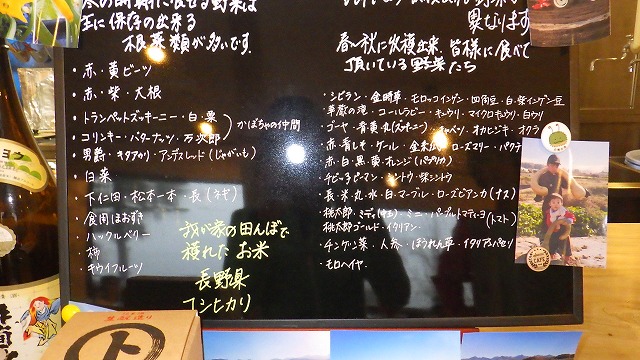 主に保存の出来る
根菜類が多いです.
・赤・黄ビーツ
・赤・紫・大根
・トランペットズッキーニ・白・栗
・コリンキー・バターナッツ・万次郎
かぼちゃの仲間
・男爵・キタアカリ・アンデスレッド(じゃがいも)
・白菜
・下仁田・松本一本・長(ネギ)
・食用ほおずき
・ハックルベリー
・柿
・キウイフルーツ
我が家の田んぼで
穫れたお米
長野県
コシヒカリ
異なります
春〜秋に収穫出来、皆様に食べて
頂いている野菜たち
・シビラン・金時草・モロッコインゲン・四角豆・白・紫インゲン豆
・コールラビー・キュウリ・マイクロキュウリ・白ウリ
・ゴーヤ・青黄丸(ズッキーニ)・キャベツ・オカヒジキ・オクラ
・赤・青しそ・ケール・ローズマリー・パクチ
・赤・白・黒・黄・オレンジ(パプリカ)
・子ピーマン・シシトウ・紫シシトウ
・長・米・丸・水・白・マーブル・ローズビアンカ(ナス)
・桃太郎・ミディ・ミニ・(トマト)
桃太郎ゴールド・イタリアン
・チンゲン菜・人参・ほうれん草・イタリアンパセリ
・モロヘイヤ.
ト